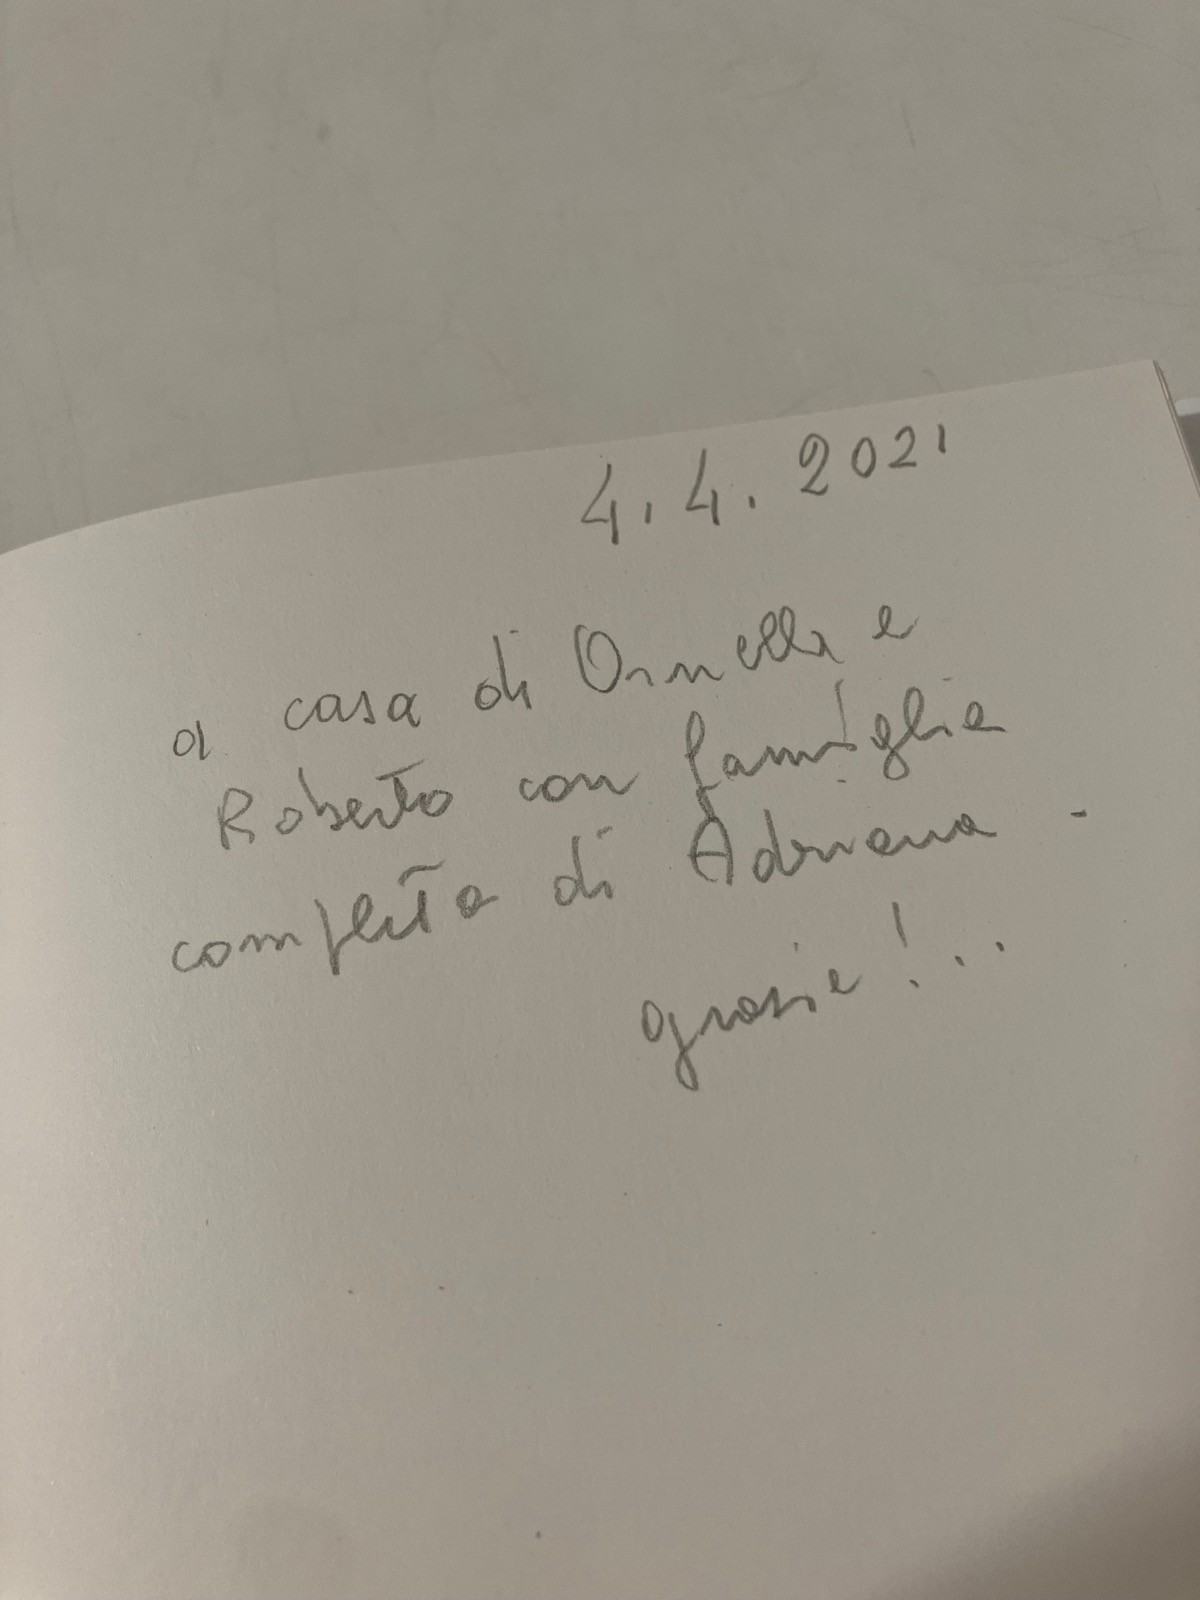 4.4.2021
a casa di Ornella e
Roberto con famiglia
completa di Adriana -
grazie!...